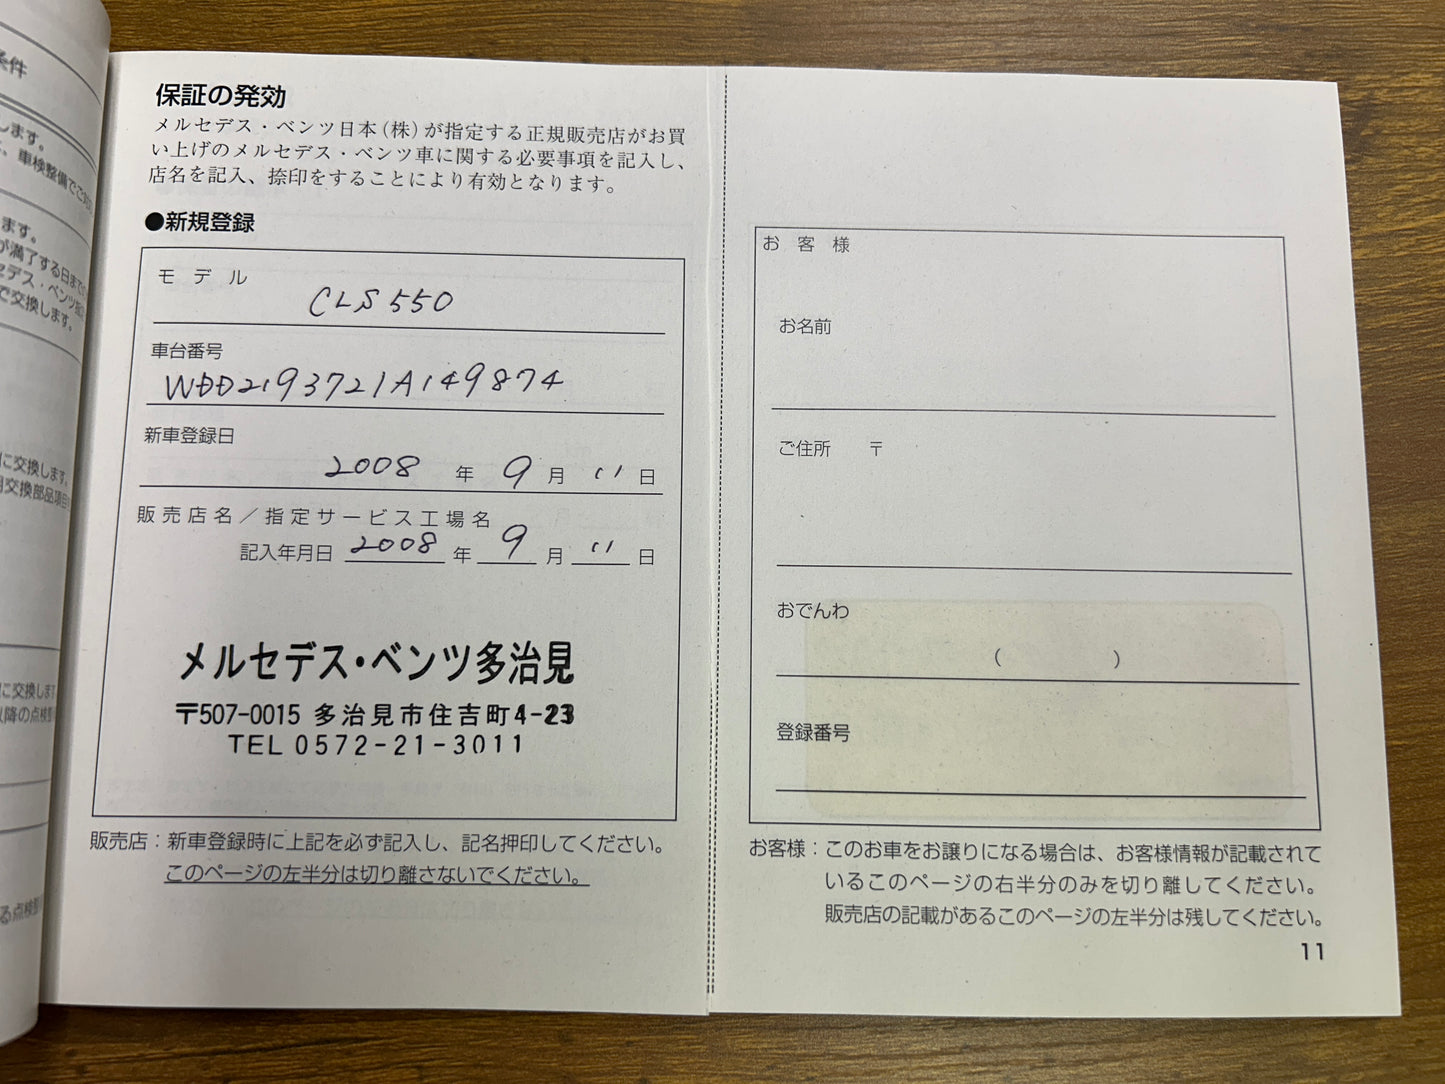 条件
します。
、車検整備でご
ます。
が満了する日まで
セデス・ベンツ
で交換します。
に交換します。
交換部品項目
に交換します
以降の点検整
る点検整
保証の発効
メルセデス・ベンツ日本(株)が指定する正規販売店がお買
い上げのメルセデス・ベンツ車に関する必要事項を記入し、
店名を記入、捺印をすることにより有効となります。
●新規登録
モデル
CLS550
車台番号
WDD2193721A149874
新車登録日
2008 年 9 月 11 日
販売店名/指定サービス工場名
記入年月日 2008 年 9 月 11 日
メルセデス・ベンツ多治見
〒507-0015 多治見市住吉町4-23
TEL 0572-21-3011
販売店:新車登録時に上記を必ず記入し、記名押印してください。
このページの左半分は切り離さないでください。
お客様
お名前
ご住所 〒
おでんわ
( )
登録番号
お客様:このお車をお譲りになる場合は、お客様情報が記載されて
いるこのページの右半分のみを切り離してください。
販売店の記載があるこのページの左半分は残してください。
11